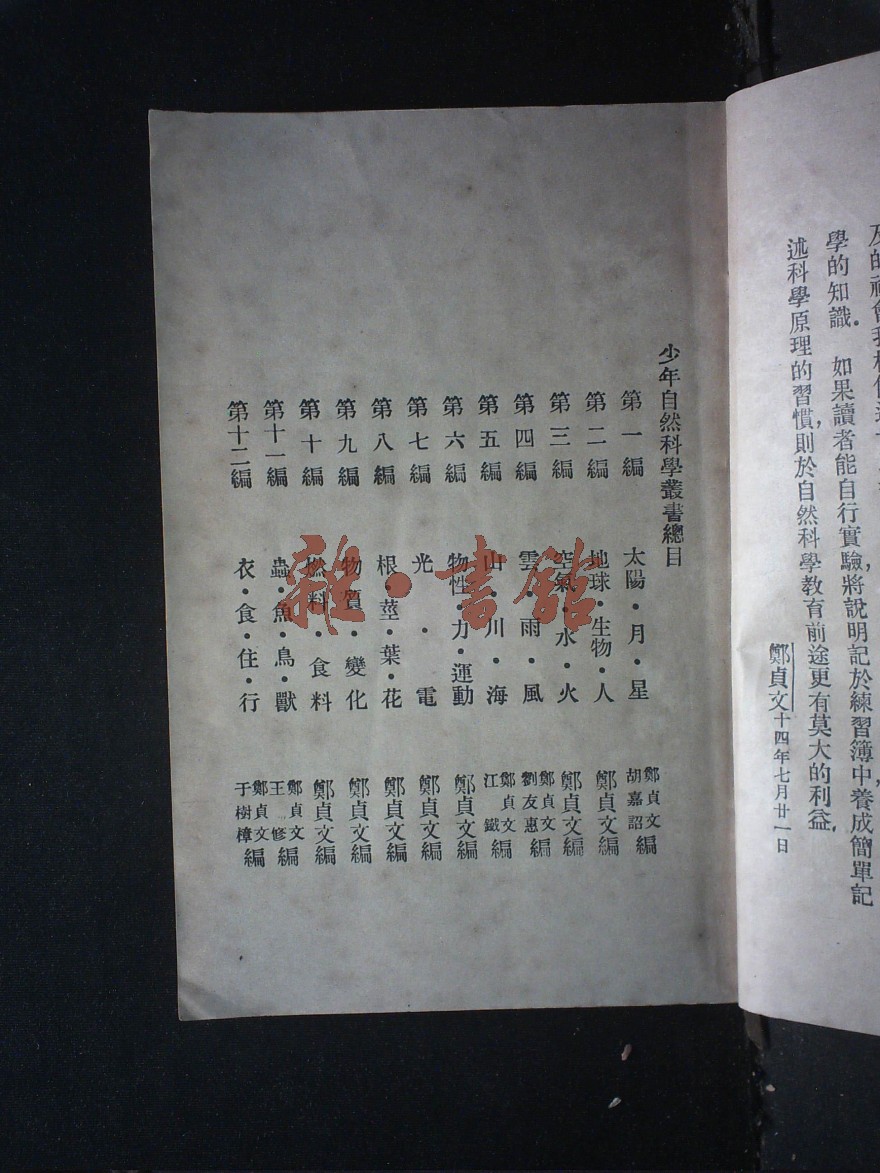 學的知識. 如果讀者能自行實驗,將說明記於練習簿中養成簡單記
述科學原理的習慣,則於自然科學教育前途更有莫大的利益.
鄭貞文十四年七月廿一日
少年自然科學叢書總目
第一編 太陽・月・星 鄭貞文 胡嘉詔 編
第二編 地球・生物・人 鄭貞文編
第三編 空氣・水・火 鄭貞文編
第四編 雲・雨・風 鄭貞文 劉友惠 編
第五編 山・川・海 鄭貞文 江鐵 編
第六編 物性・力・運動 鄭貞文編
第七編 光・電 鄭貞文編
第八編 根・莖・葉・花 鄭貞文編
第九編 物質・變化 鄭貞文編
第十編 燃料・食料 鄭貞文編
第十一編 蟲・魚・鳥・獸 鄭貞文 王修 編
第十二編 衣・食・住・行 鄭貞文 于樹樟 編
雜・書館